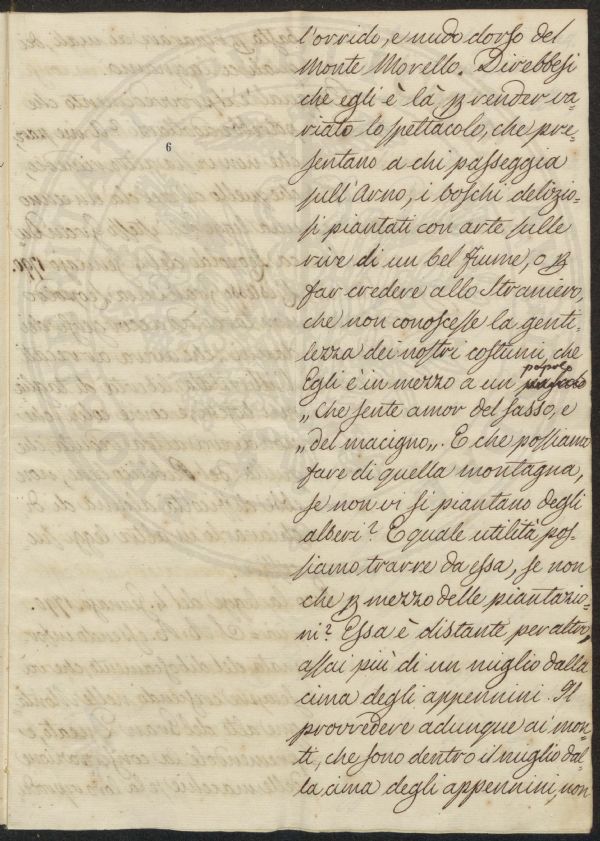 l'orrido, e nudo dorso del
Monte Morello. Direbbesi
che egli è là ꝑ render va-
riato lo spettacolo, che pre-
6
sentano a chi passeggia
sull'Arno, i boschi delizio-
si piantati con arte sulle
rive di un bel fiume, o ꝑ
far credere allo Straniero,
che non conoscesse la genti-
lezza dei nostri costumi, che
popolo
Egli è in mezzo a un
„ che sente amor del sasso, e
„ del macigno „. E che possiamo
fare di quella montagna,
se non vi si piantano degli
alberi? E quale utilità pos-
siamo trarre da essa, se non
che ꝑ mezzo delle piantazio-
ni? Essa è distante per altro
assai più di un miglio dalla
cima degli appennini. Il
provvedere adunque ai mon-
ti, che sono dentro il miglio dal-
la cima degli appennini, non